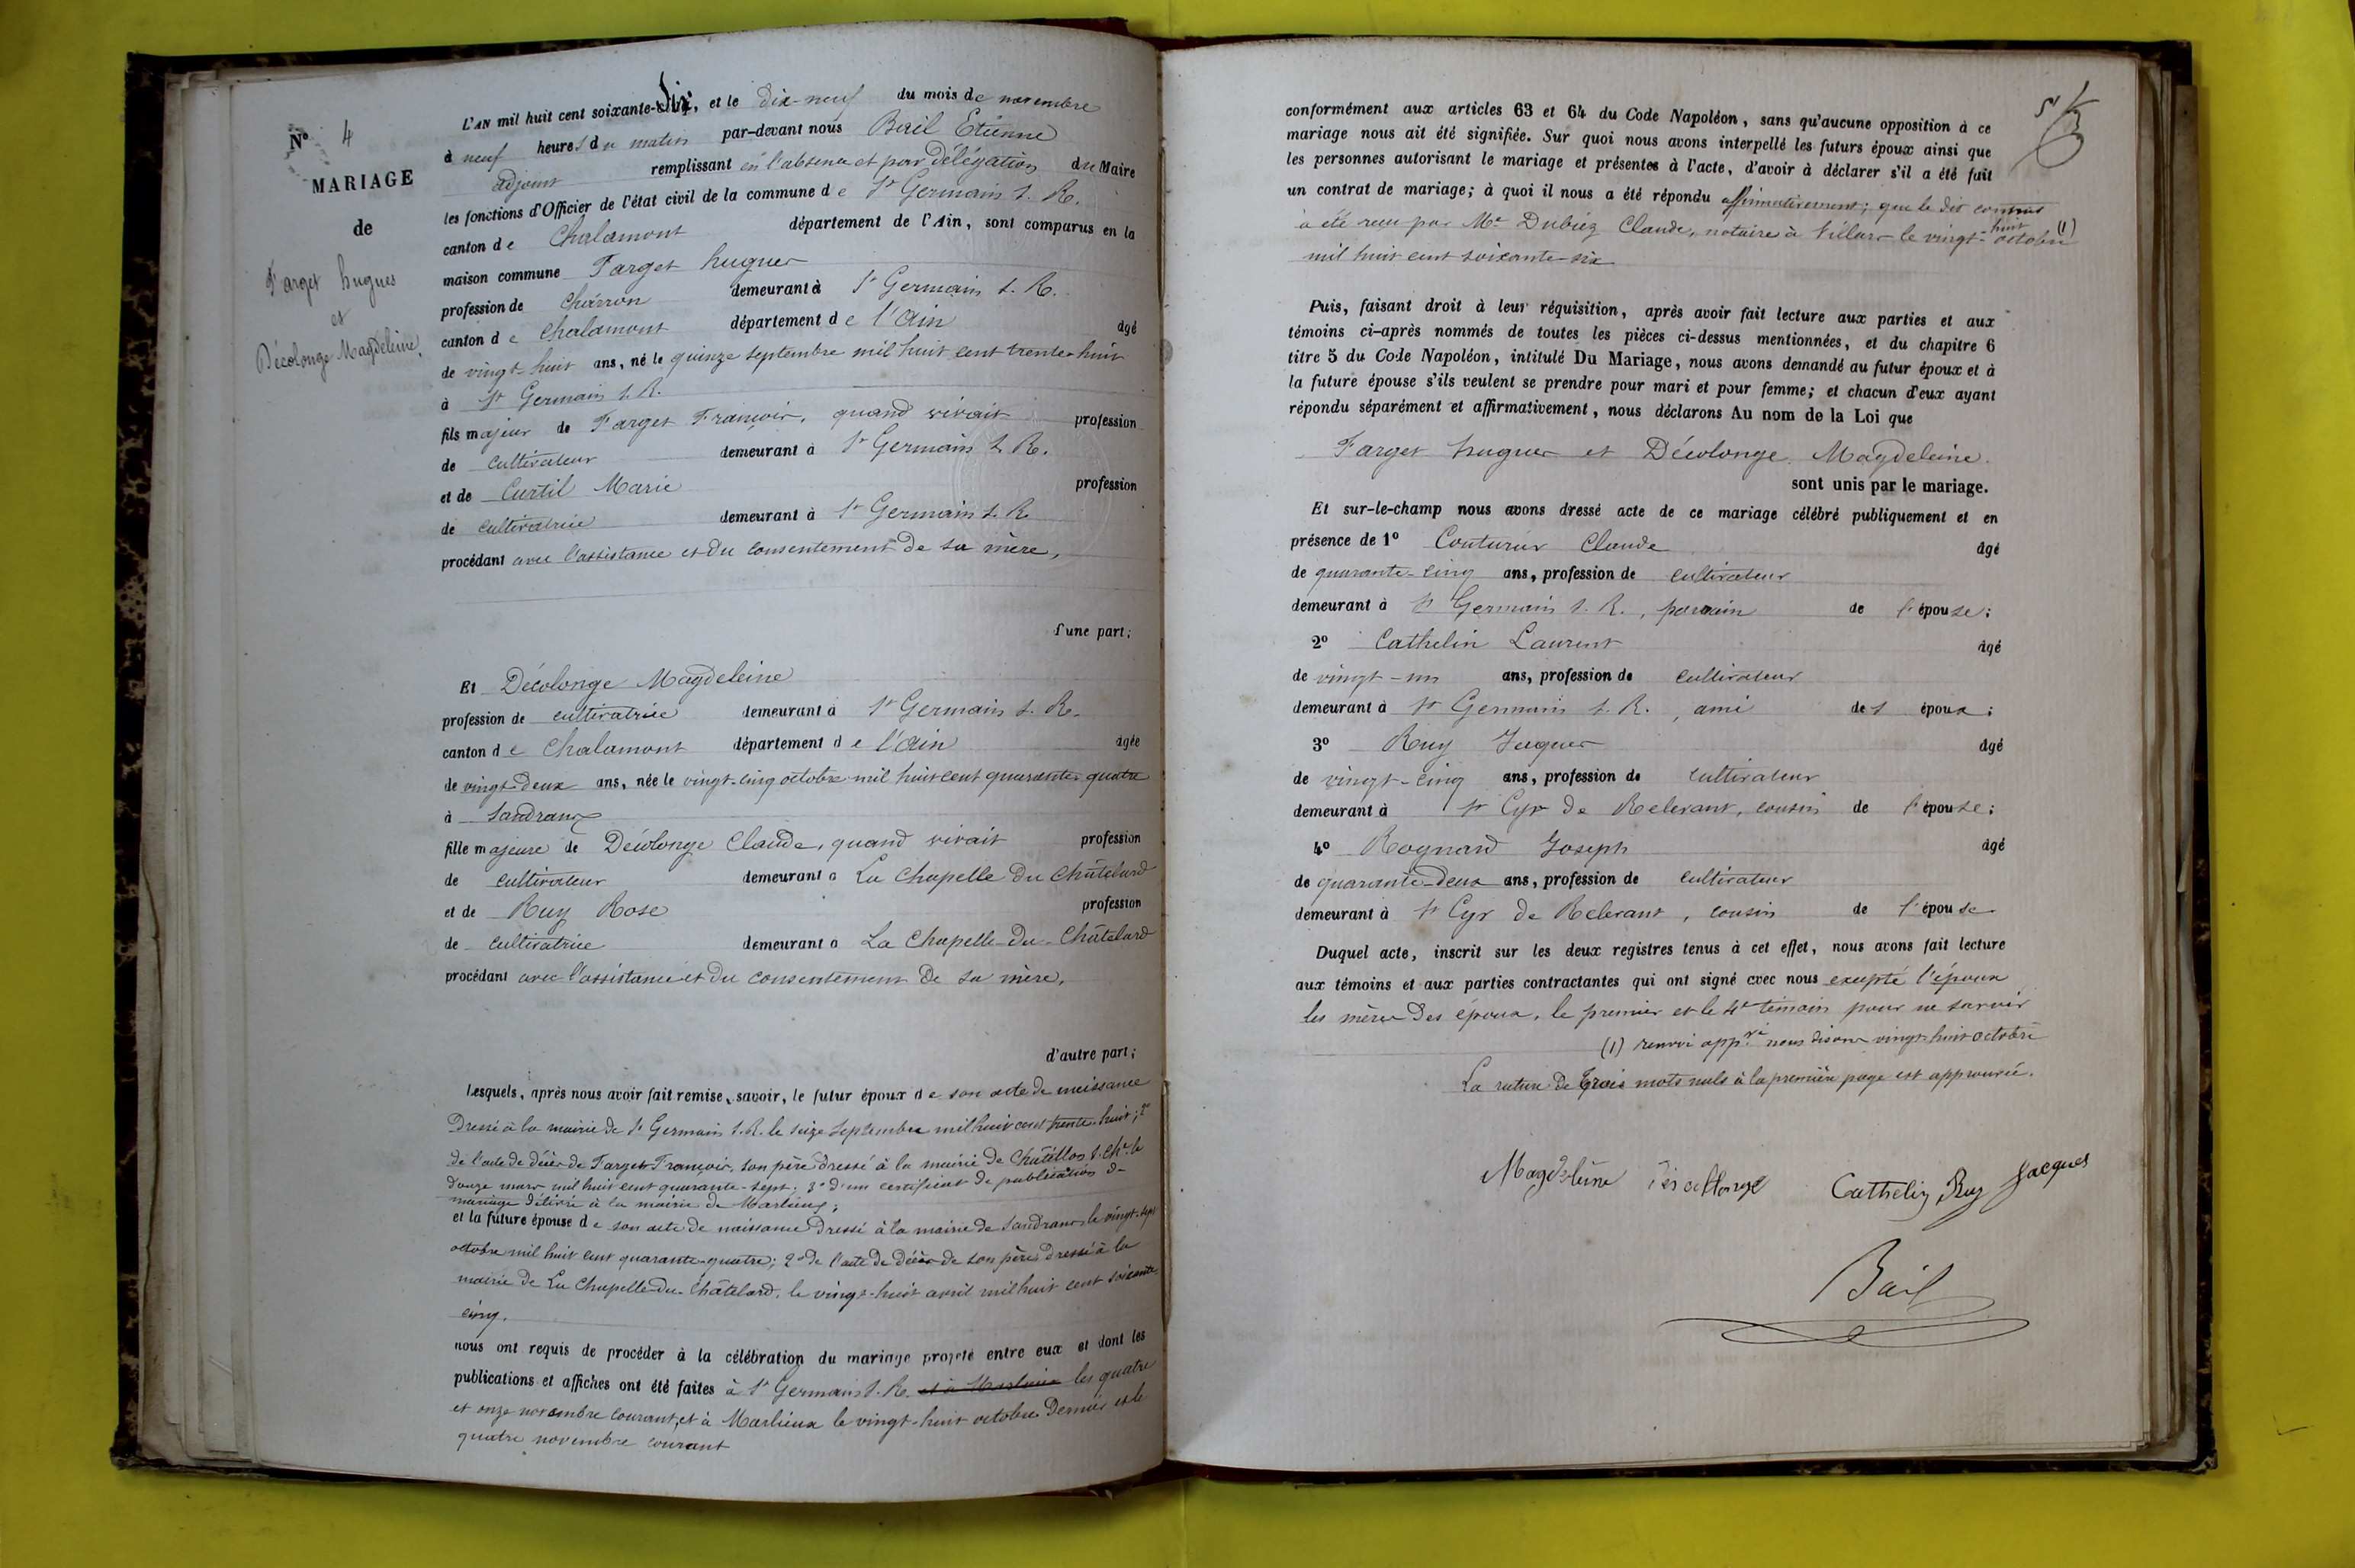 N° 4
MARIAGE
de
Farget hugues
et
Décolonge Magdeleine.
L'AN mil huit cent soixante-six, et le dix-neuf du mois de novembre
à neuf heures du matin par-devant nous Bail Etienne
adjoint remplissant en l'absence et par délégation du Maire
les fonctions d'Officier de l'état civil de la commune de St Germain s. R.
canton de Chalamont département de l'Ain, sont comparus en la
maison commune Farget hugues
profession de charron demeurant à St Germain s. R.
canton de Chalamont département de l'Ain âgé
de vingt-huit ans, né le quinze septembre mil huit cent trente-huit
à St Germain s. R.
fils majeur de Farget François, quand vivait profession
de cultivateur demeurant à St Germain s. R.
et de Curtil Marie profession
de cultivatrice demeurant à St Germain s. R.
procédant avec l'assistance et du consentement de sa mère,
d'une part;
Et Décolonge Magdeleine
profession de cultivatrice demeurant à St Germain s. R.
canton de Chalamont département de l'Ain âgée
de vingt-deux ans, née le vingt-cinq octobre mil huit cent quarante-quatre
à Sandrans
fille majeure de Décolonge Claude, quand vivait profession
de cultivateur demeurant à La Chapelle du Châtelard
et de Ruy Rose profession
de cultivatrice demeurant à La Chapelle-du-Châtelard
procédant avec l'assistance et du consentement de sa mère,
d'autre part;
Lesquels, après nous avoir fait remise, savoir, le futur époux de son acte de naissance
dressé à la mairie de St Germain s. R. le seize septembre mil huit cent trente-huit; 2°
de l'acte de décès de Farget François, son père dressé à la mairie de Châtillon s. Chne le
douze mars mil huit cent quarante-sept; 3° d'un certificat de publication de
mariage délivré à la mairie de Marlieux;
et la future épouse de son acte de naissance dressé à la mairie de Sandrans le vingt-sept
octobre mil huit cent quarante-quatre; 2° de l'acte de décès de son père dressé à la
mairie de La Chapelle-du-Châtelard, le vingt-huit avril mil huit cent soixante-
cinq.
nous ont requis de procéder à la célébration du mariage projeté entre eux et dont les
publications et affiches ont été faites à St Germain s. R. et à Marlieux les quatre
et onze novembre courant, et à Marlieux le vingt-huit octobre dernier et le
quatre novembre courant
conformément aux articles 63 et 64 du Code Napoléon, sans qu'aucune opposition à ce
mariage nous ait été signifiée. Sur quoi nous avons interpellé les futurs époux ainsi que
les personnes autorisant le mariage et présentes à l'acte, d'avoir à déclarer s'il a été fait
un contrat de mariage; à quoi il nous a été répondu affirmativement; que le dit contrat
a été reçu par Me Dubiez Claude, notaire à Villars le vingt-huit octobre (1)
mil huit cent soixante-six
Puis, faisant droit à leur réquisition, après avoir fait lecture aux parties et aux
témoins ci-après nommés de toutes les pièces ci-dessus mentionnées, et du chapitre 6
titre 5 du Code Napoléon, intitulé Du Mariage, nous avons demandé au futur époux et à
la future épouse s'ils veulent se prendre pour mari et pour femme; et chacun d'eux ayant
répondu séparément et affirmativement, nous déclarons Au nom de la Loi que
Farget hugues et Décolonge Magdeleine.
sont unis par le mariage.
Et sur-le-champ nous avons dressé acte de ce mariage célébré publiquement et en
présence de 1° Couturier Claude âgé
de quarante-cinq ans, profession de cultivateur
demeurant à St Germain s. R., parrain de l'épouse;
2° Cathelin Laurent âgé
de vingt-un ans, profession de cultivateur
demeurant à St Germain s. R., ami des époux;
3° Ruy Jacques âgé
de vingt-cinq ans, profession de cultivateur
demeurant à St Cyr de Relevant, cousin de l'épouse;
4° Roynard Joseph âgé
de quarante-deux ans, profession de cultivateur
demeurant à St Cyr de Relevant, cousin de l'épouse
Duquel acte, inscrit sur les deux registres tenus à cet effet, nous avons fait lecture
aux témoins et aux parties contractantes qui ont signé avec nous excepté l'époux
les mères des époux, le premier et le 4e témoin pour ne savoir
(1) renvoi appvé nous disons vingt-huit octobre
La rature de trois mots nuls à la première page est approuvée.
Magdeleine Décollonge Cathelin Ruy Jacques
Bail